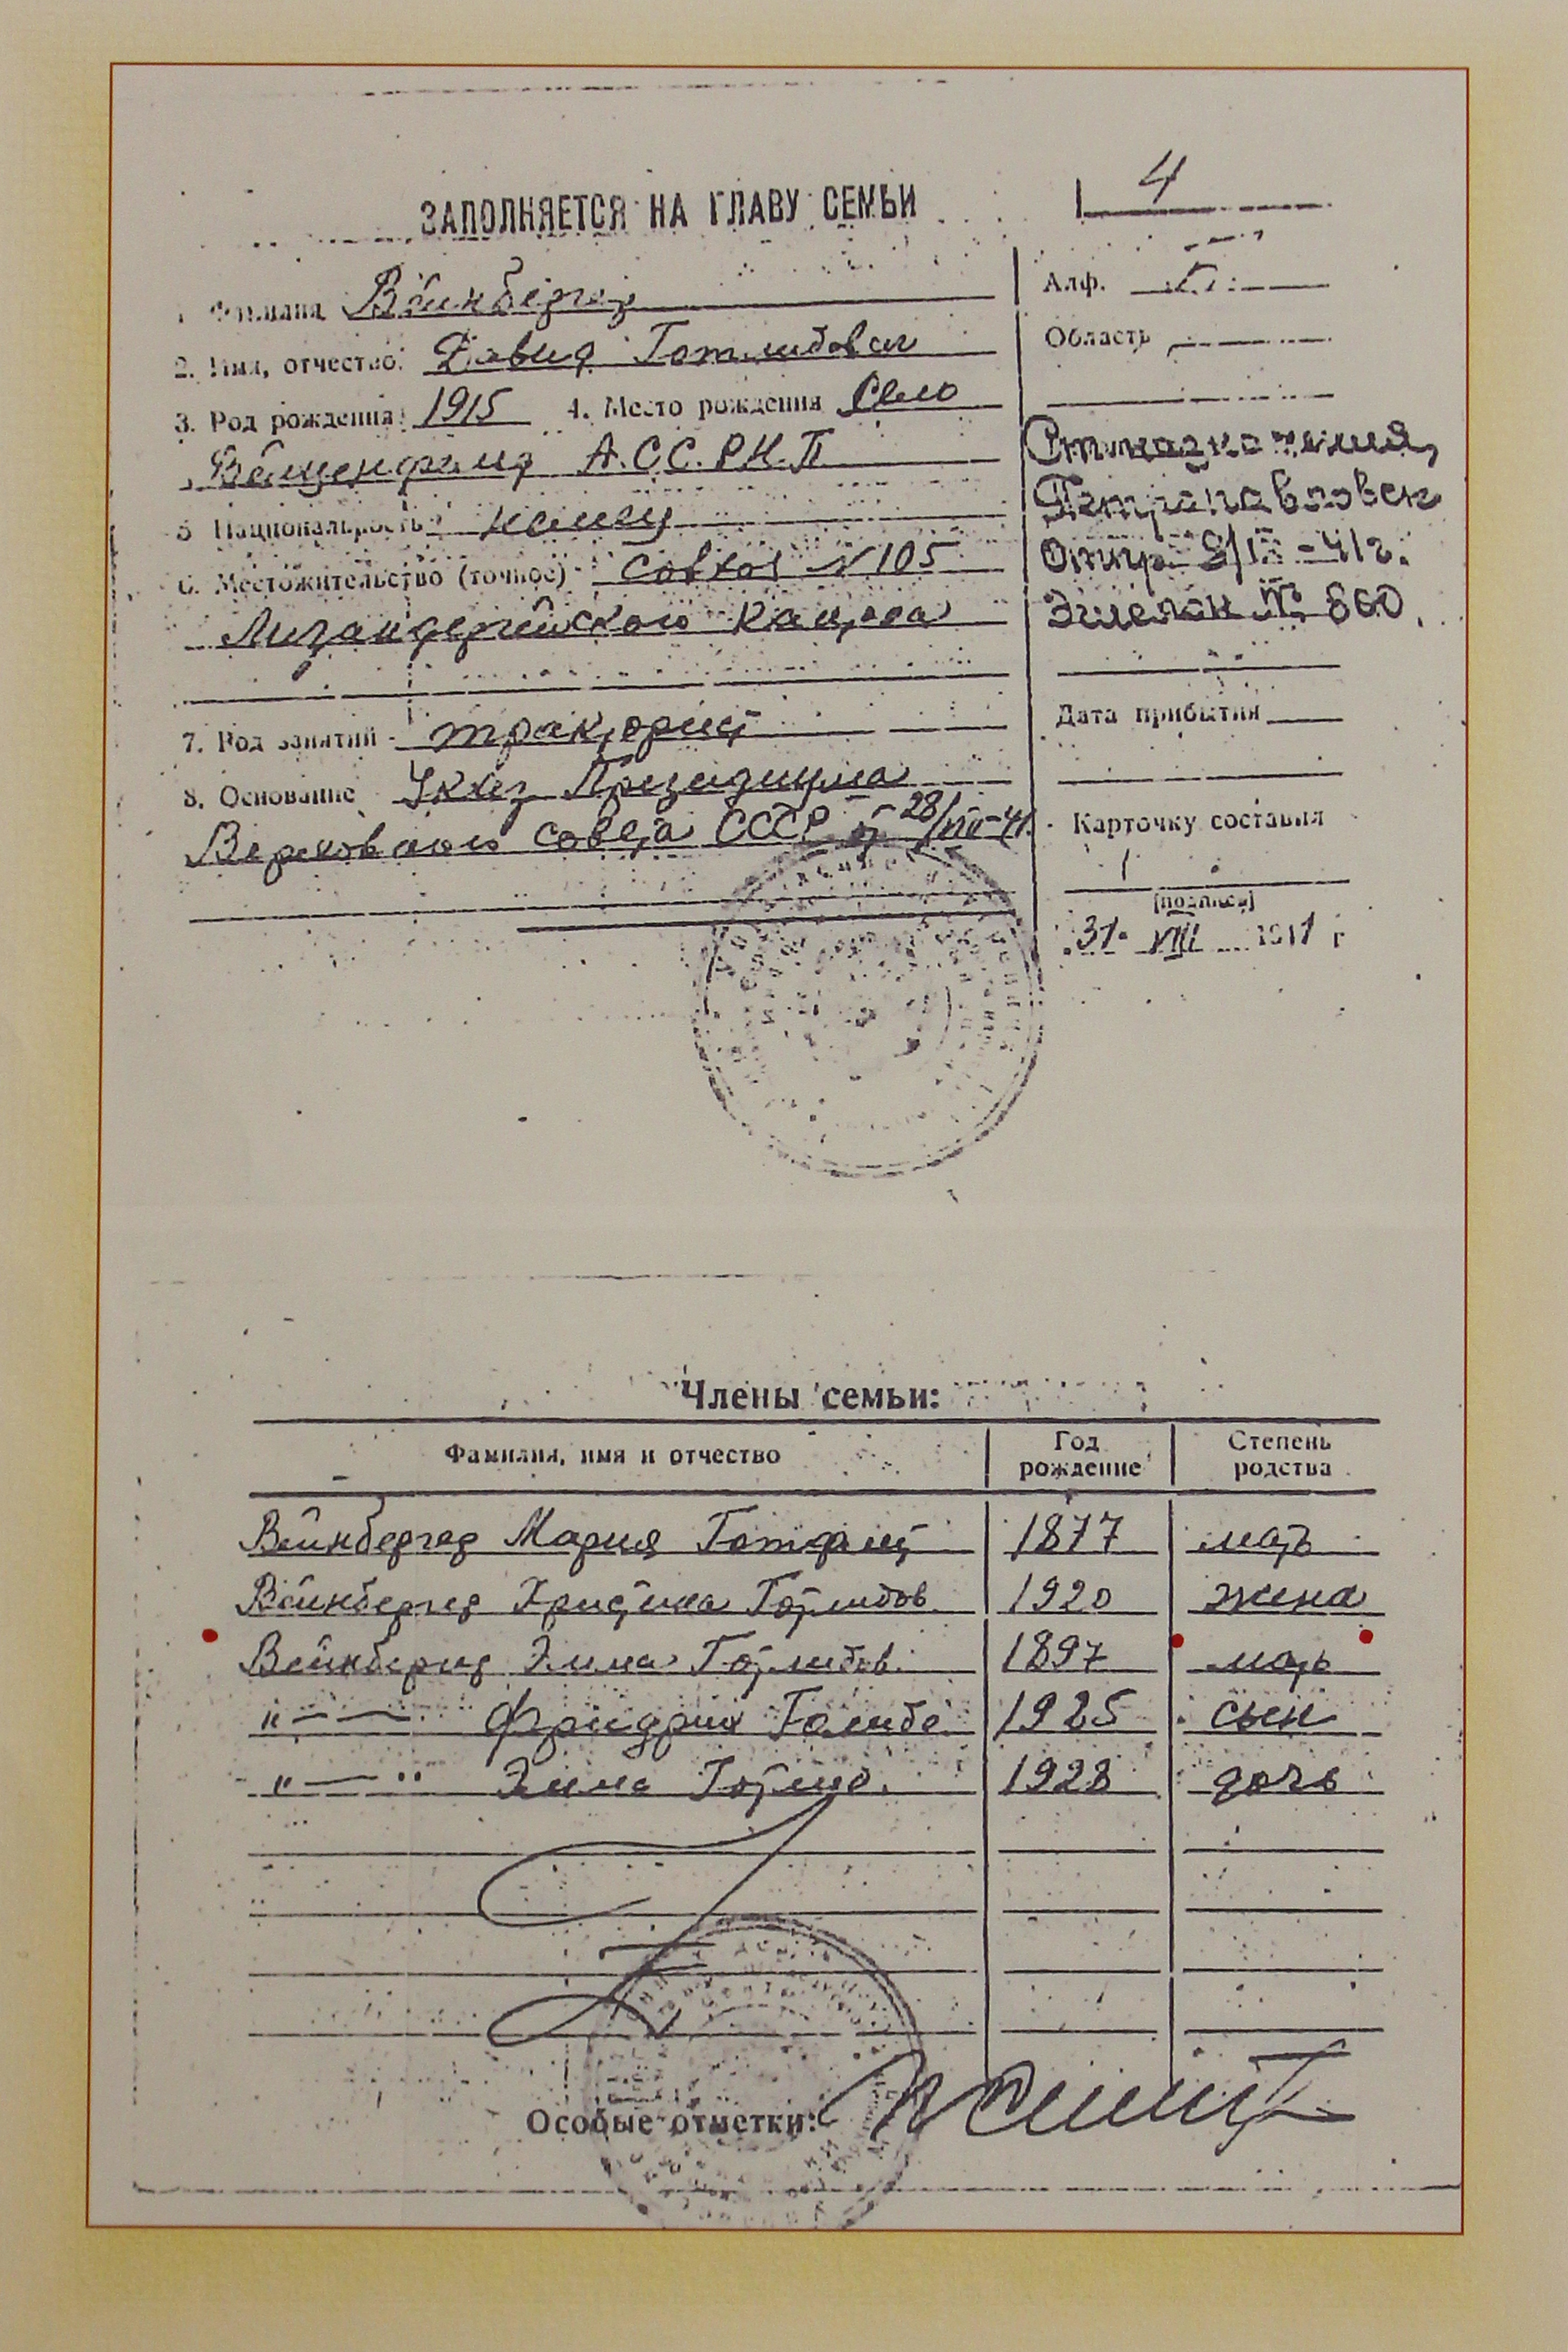 ЗАПОЛНЯЕТСЯ НА ГЛАВУ СЕМЬИ
4
1. Фамилия Вейнбергер
Алф.
2. Имя, отчество: Давид Готлибович
Область
3. Год рождения 1915 4. Место рождения село
А.С.С.Р.Н.П
Ст. назначения,
5 Национальность немец
Петропавловск
6. Местожительство (точное) совхоз № 105
отпр. 9/IX-41г.
кантона
Эшелон № 860
7. Род занятий тракторист
Дата прибытия
8. Основание Указ Президиума
Верховного совета СССР от 28/VIII-41.
Карточку составил
[подпись]
31. VIII 1941 г
Члены семьи:
Фамилия, имя и отчество
Год рождение
Степень родства
Вейнбергер Мария 1877 мать
Вейнбергер Готлибов. 1920 жена
Вейнбергер Эмма Готлибов. 1897 мать
"—— Фридрих 1925 сын
"—— " Эмма 1928 дочь
Особые отметки: